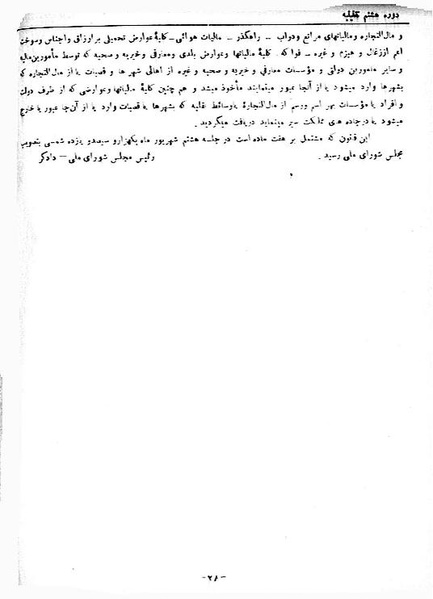 دوره هشتم تقنینیه
و مال‌التجاره و مالیاتهای مراتع و دواب ـ راهگذر ـ مالیات هوائی ـ کلیهٔ عوارض تحمیلی بر ارزاق و اجناس و سوخت
اعم از زغال و هیزم و غیره ـ فواکه . کلیهٔ مالیاتها و عوارض بلدی و معارفی و خیریه و صحیه که توسط مأمورین مالیه
و سایر مأمورین دولتی و مؤسسات معارفی و خیریه و صحیه و غیره از اهالی شهرها و قصبات یا از مال‌التجاره که
بشهرها وارد میشود یا از آنجا عبور مینمایند مأخوذ میشد و هم چنین کلیهٔ مالیاتها و عوارضی که از طرف دولت
و افراد یا مؤسسات بهر اسم و رسم از مال‌التجارهٔ یا وسائط نقلیه که بشهرها یا قصبات وارد یا از آن‌جا عبور یا خارج
میشود یا در جاده های مملکت سیر مینماید دریافت میگردید .
این قانون که مشتمل بر هفت ماده است در جلسه هشتم شهریور ماه یکهزار و سیصد و یازده شمسی بتصویب
مجلس شورای ملی رسید .
رئیس مجلس شورای ملی ـ دادگر